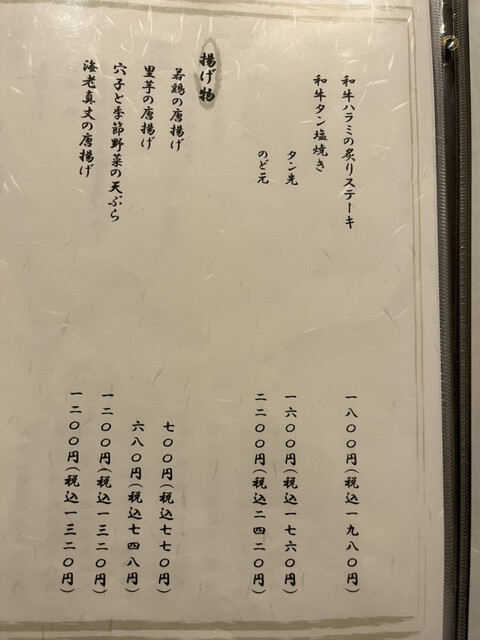 和牛ハラミの炙りステーキ 一八〇〇円(税込一九八〇円)
和牛タン塩焼き
タン先 一六〇〇円(税込一七六〇円)
のど元 二二〇〇円(税込二四二〇円)
揚げ物
若鶏の唐揚げ 七〇〇円(税込七七〇円)
里芋の唐揚げ 六八〇円(税込七四八円)
穴子と季節野菜の天ぷら 一二〇〇円(税込一三二〇円)
海老真丈の唐揚げ 一二〇〇円(税込一三二〇円)